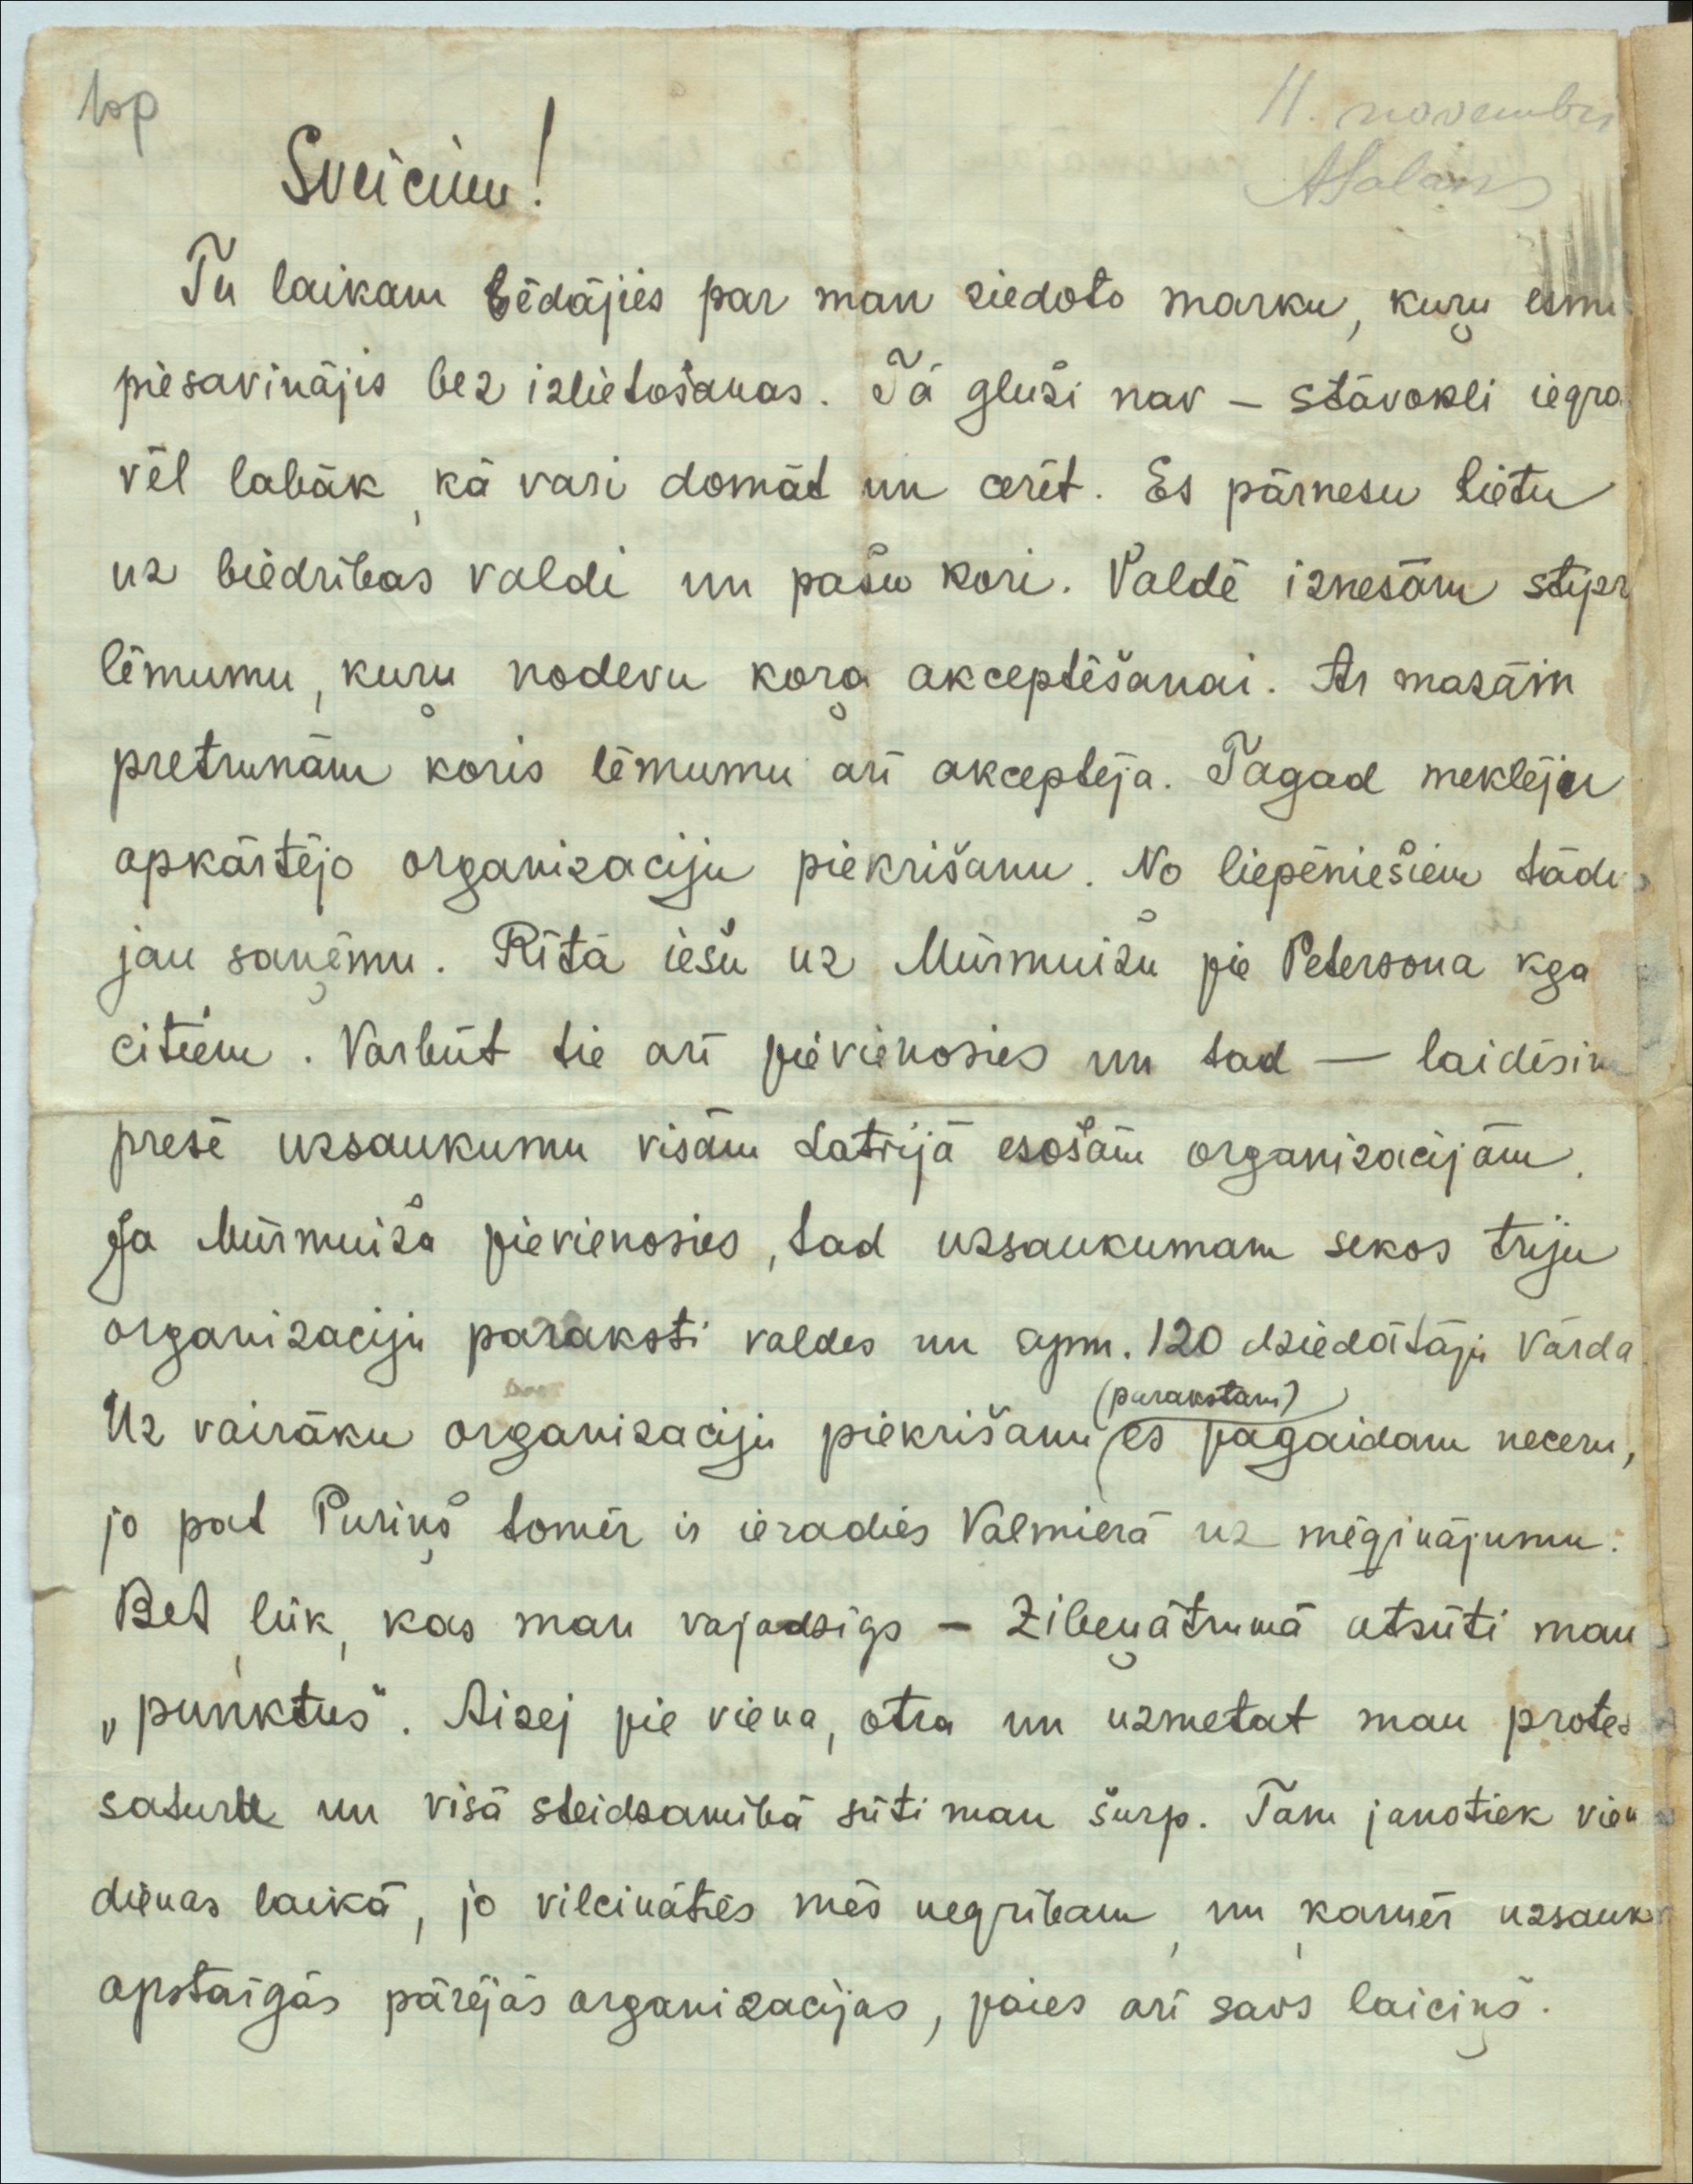 11. novembri
ASalāns
Sveicieni!
Tu laikam bēdājies par man ziedoto marku, kuŗu esmu
piesavinājis bez izlietošanas. Tā gluži nav – stāvokli iegro
vēl labāk, kā vari domāt un cerēt. Es pārnesu lietu
uz biedrības valdi un pašu kori. Valdē iznesām stipr
lēmumu, kuŗu nodevu koŗa akceptēšanai. Ar mazām
pretrunām koris lēmumu arī akceptēja. Tagad meklēju
apkārtējo organizaciju piekrišanu. No liepēniešiem tādu
jau saņēmu. Rītā iešu uz Mūrmuižu pie Petersona kga
citiem. Varbūt tie arī pievienosies un tad — laidīsim
presē uzsaukumu visām Latvijā esošām organizacijām.
Ja Mūrmuiža pievienosies, tad uzsaukumam sekos triju
organizaciju paraksti valdes un apm. 120 dziedātāju vārdā
(parakstam)
Uz vairāku organizaciju piekrišanu es pagaidam neceru,
jo pat Puriņš tomēr ir ieradies Valmierā uz mēģinājumu.
Bet, lūk, kas man vajadzīgs – Zibeņātrumā atsūti man
„punktus“. Aizej pie viena, otra un uzmetat man protes
saturu un visā steidzamībā sūti man šurp. Tam janotiek vien
dienas laikā, jo vilcināties mēs negribam, un, kamēr uzsauk
apstaigās pārējās organizacijas, paies arī savs laiciņš.